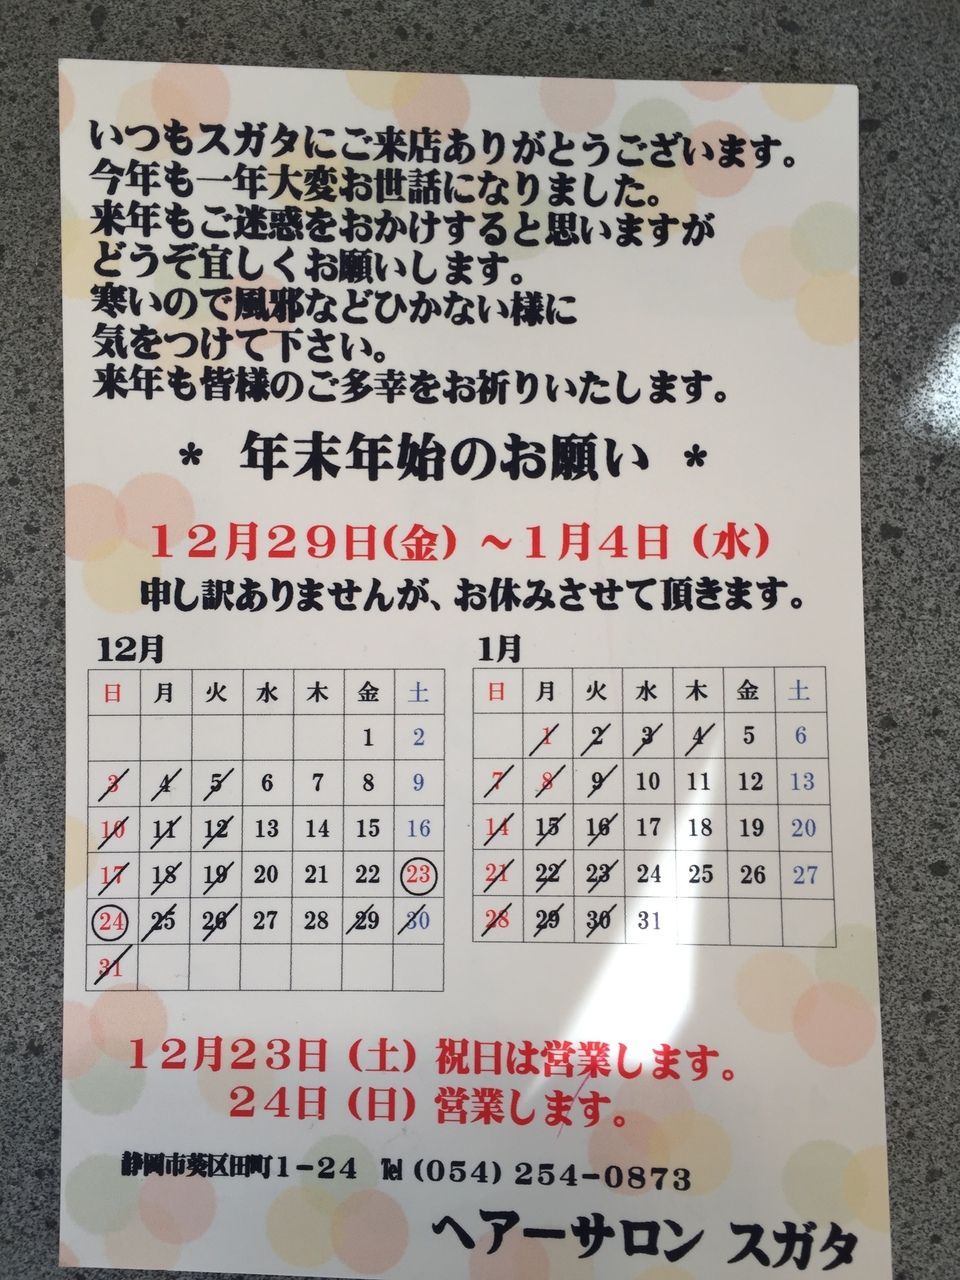 いつもスガタにご来店ありがとうございます。
今年も一年大変お世話になりました。
来年もご迷惑をおかけすると思いますが
どうぞ宜しくお願いします。
寒いので風邪などひかない様に
気をつけて下さい。
来年も皆様のご多幸をお祈りいたします。
* 年末年始のお願い *
12月29日(金) ～1月4日 (水)
申し訳ありませんが、お休みさせて頂きます。
12月
日 月 火 水 木 金 土
1 2
3 4 5 6 7 8 9
10 11 12 13 14 15 16
17 18 19 20 21 22 23
24 25 26 27 28 29 30
31
1月
日 月 火 水 木 金 土
1 2 3 4 5 6
7 8 9 10 11 12 13
14 15 16 17 18 19 20
21 22 23 24 25 26 27
28 29 30 31
12月23日 (土) 祝日は営業します。
24日 (日) 営業します。
静岡市葵区田町1-24 ℡ (054) 254-0873
ヘアーサロン スガタ